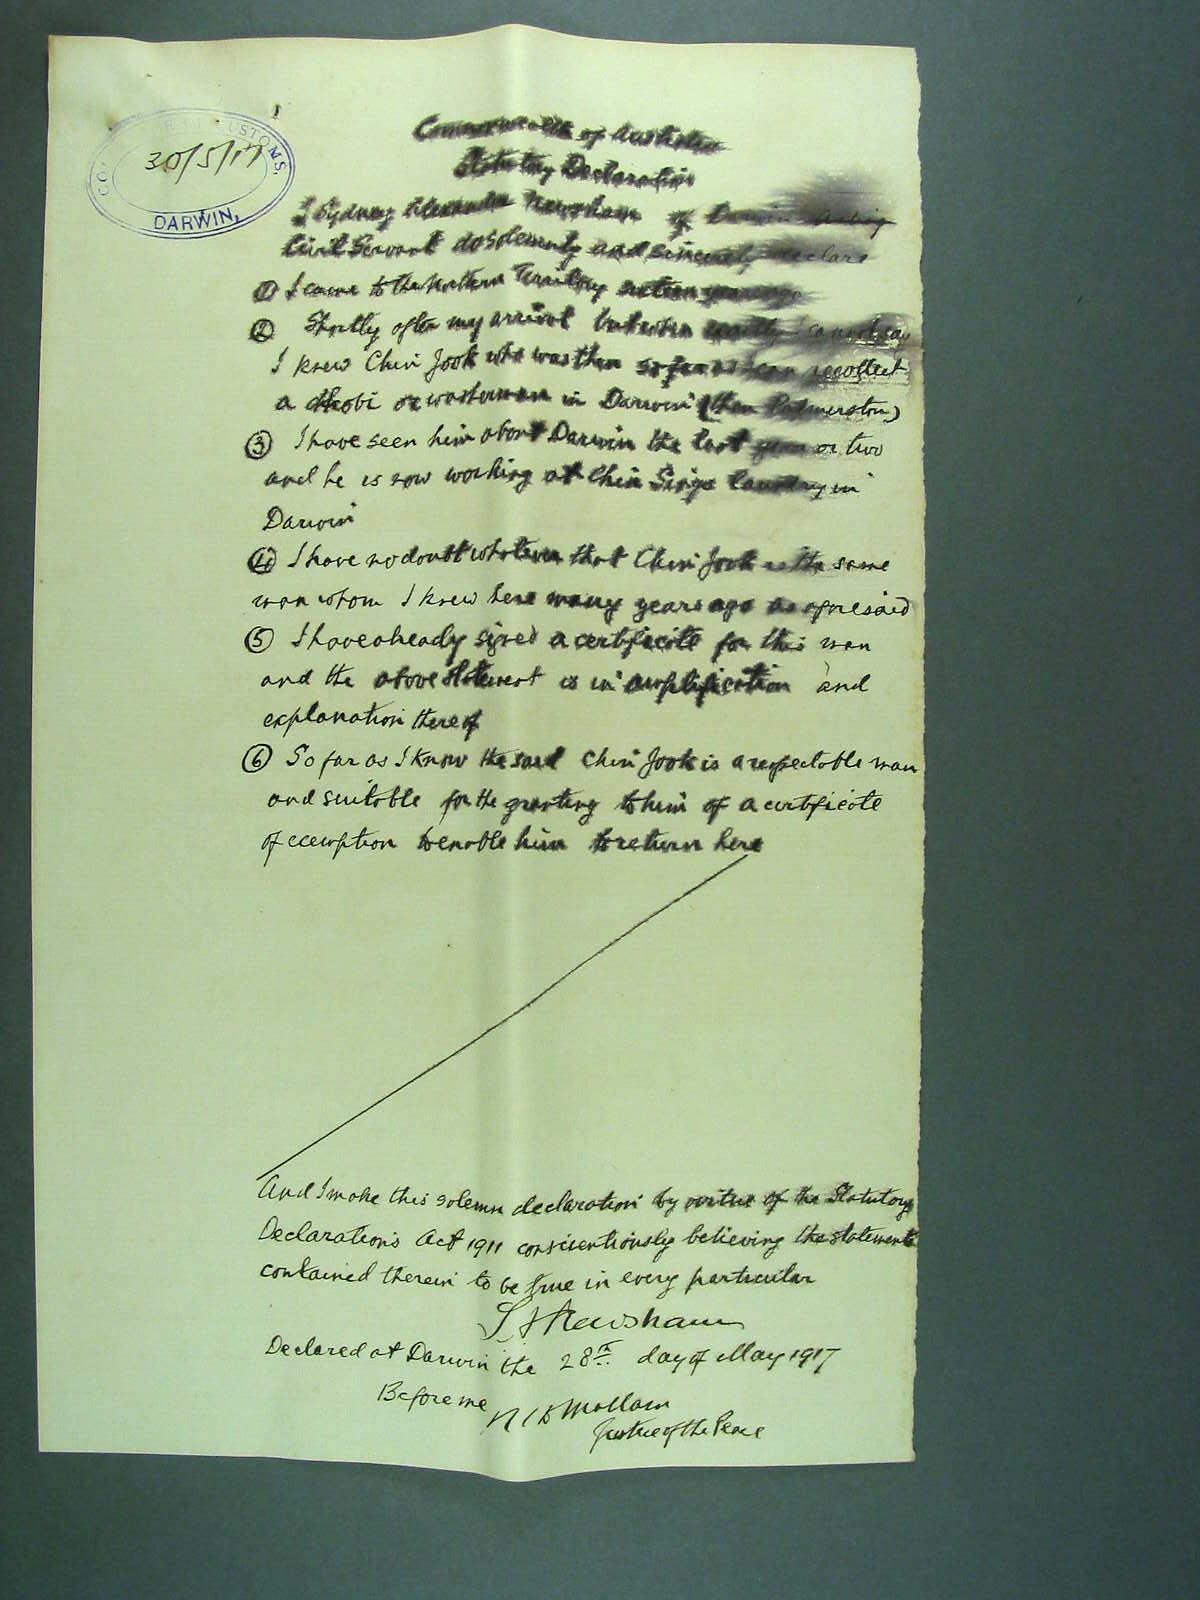 CUSTOMS.
30/5/17
DARWIN,
Commonwealth of Australia
Statutory Declaration
I Sydney Alexander Newsham of Darwin
Civil Servant do solemnly and sincerely declare
① I came to the Northern Territory sixteen years ago
② Shortly after my arrival but when exactly I cannot say
I knew Chin Jook who was then so far as I can recollect
a dhobi or washerman in Darwin (then Palmerston)
③ I have seen him about Darwin the last year or two
and he is now working at Chin Sings laundry in
Darwin
④ I have no doubt whatever that Chin Jook is the same
man whom I knew here many years ago as aforesaid
⑤ I have already signed a certificate for this man
and the above statement is in amplification and
explanation thereof
⑥ So far as I know the said Chin Jook is a respectable man
and suitable for the granting to him of a certificate
of exemption to enable him to return here
And I make this solemn declaration by virtue of the Statutory
Declarations Act 1911 conscientiously believing the statements
contained therein to be true in every particular
S A Newsham
Declared at Darwin the 28th day of May 1917
Before me
Mollam
Justice of the Peace